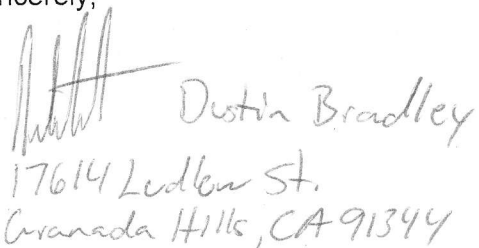 ncerely,
Dustin Bradley
17614 Ludlow St.
Granada Hills, CA 91344